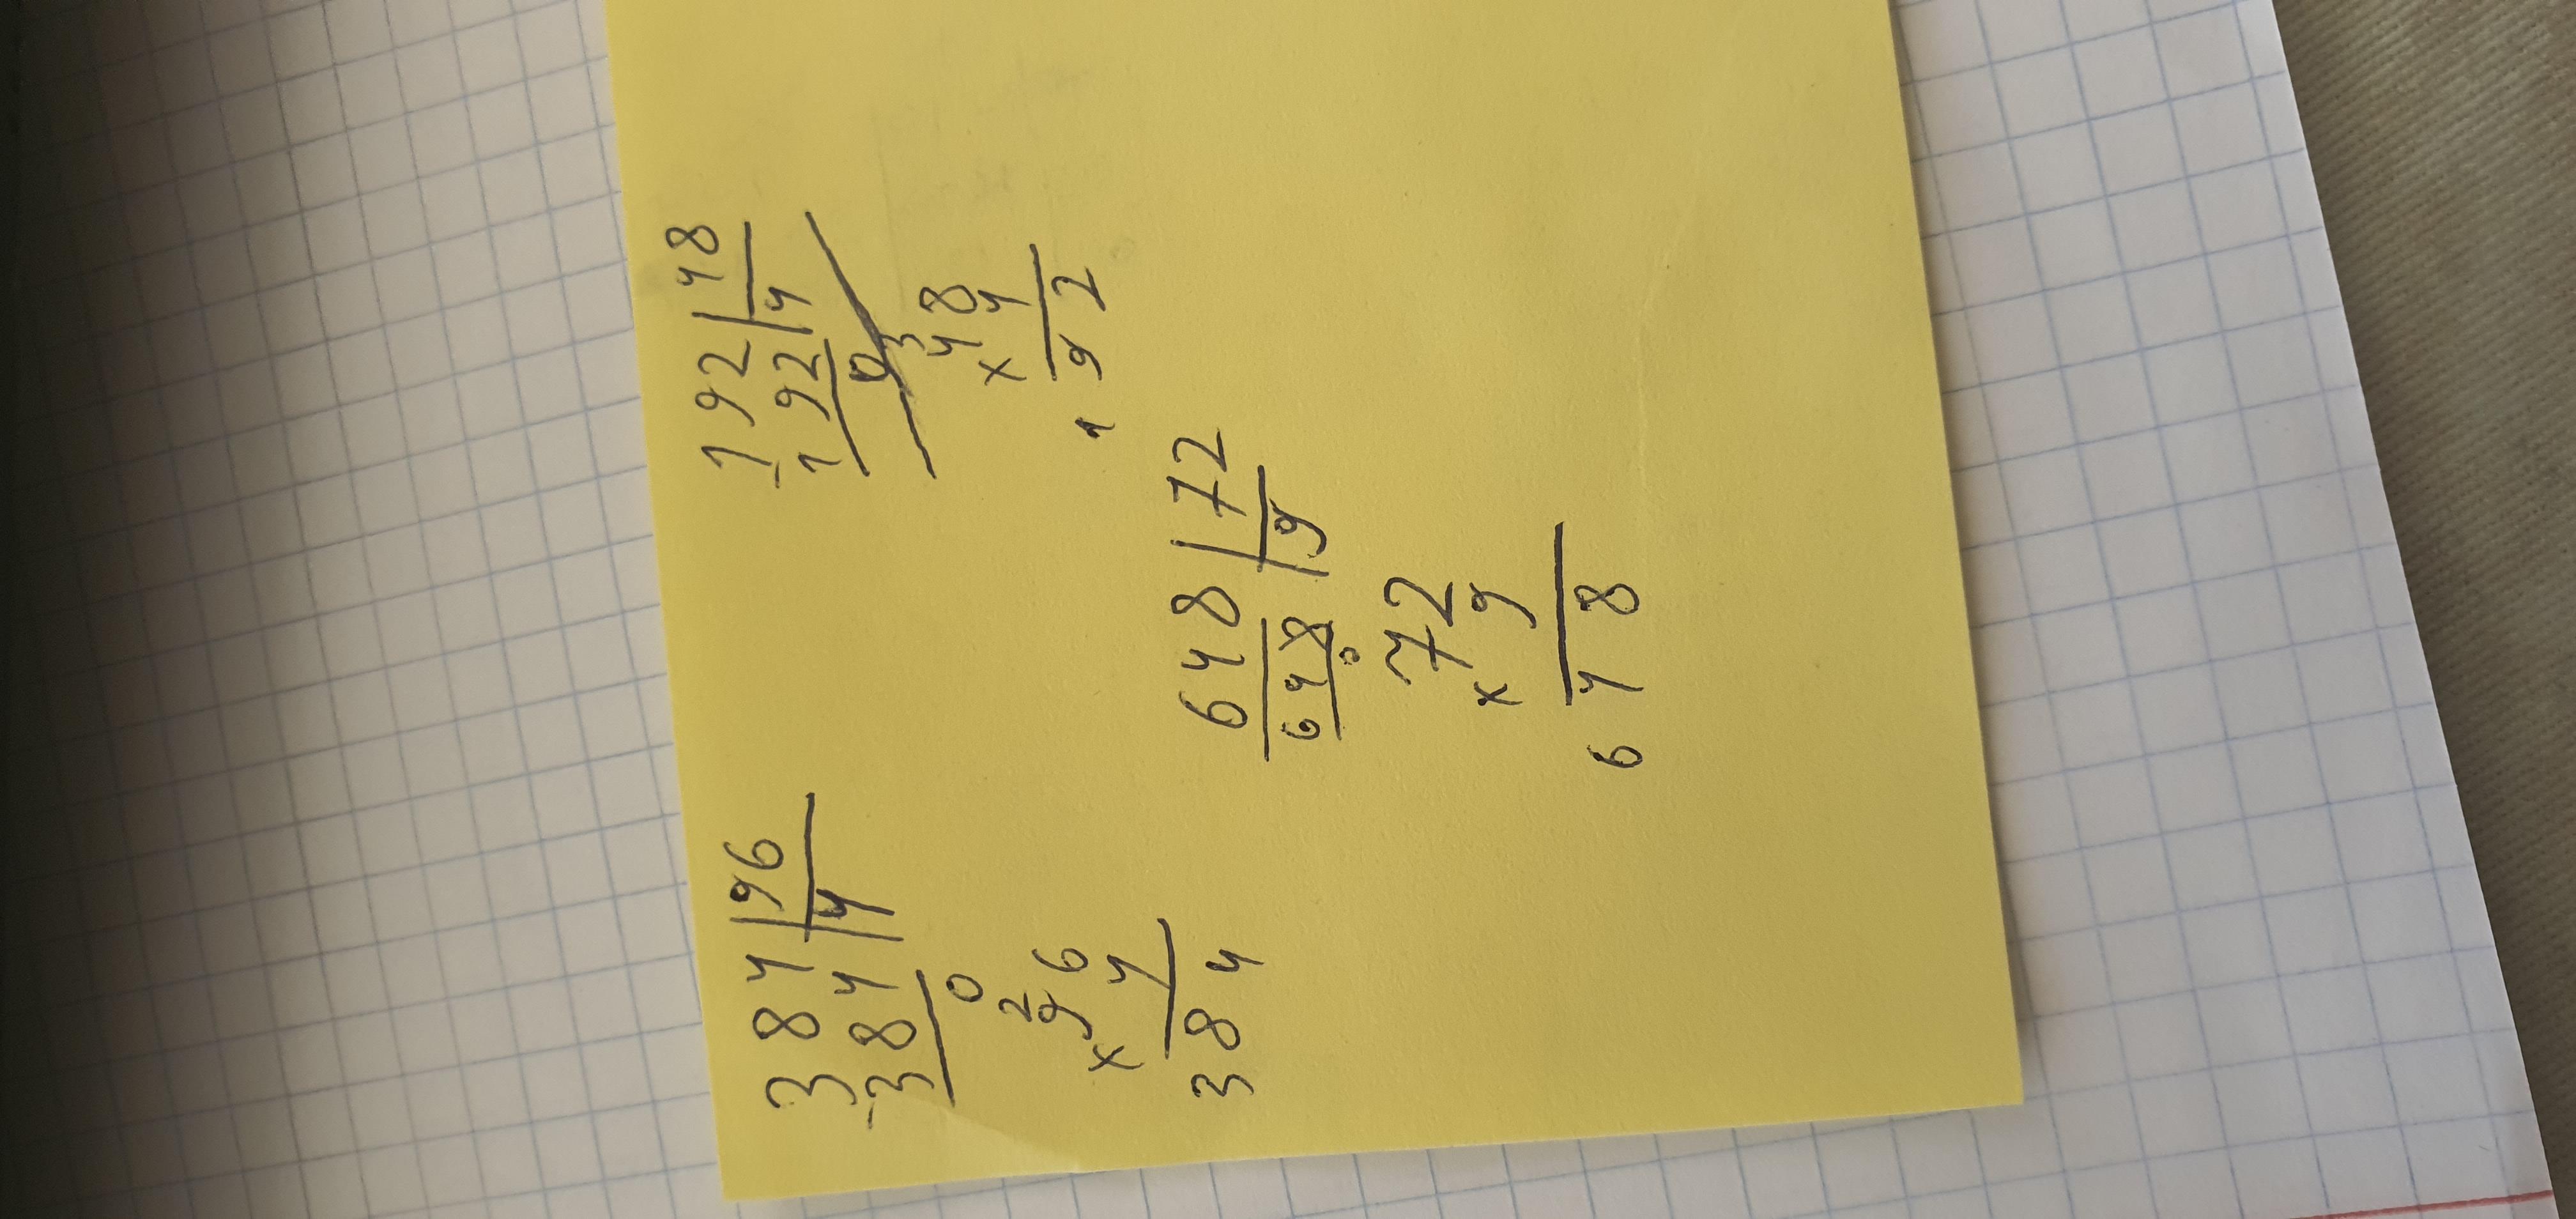 384|96
-384|4
0
2
96
x 4
384
192|48
-192|4
0
3
48
x 4
192
648|72
648|9
0
72
x 9
648